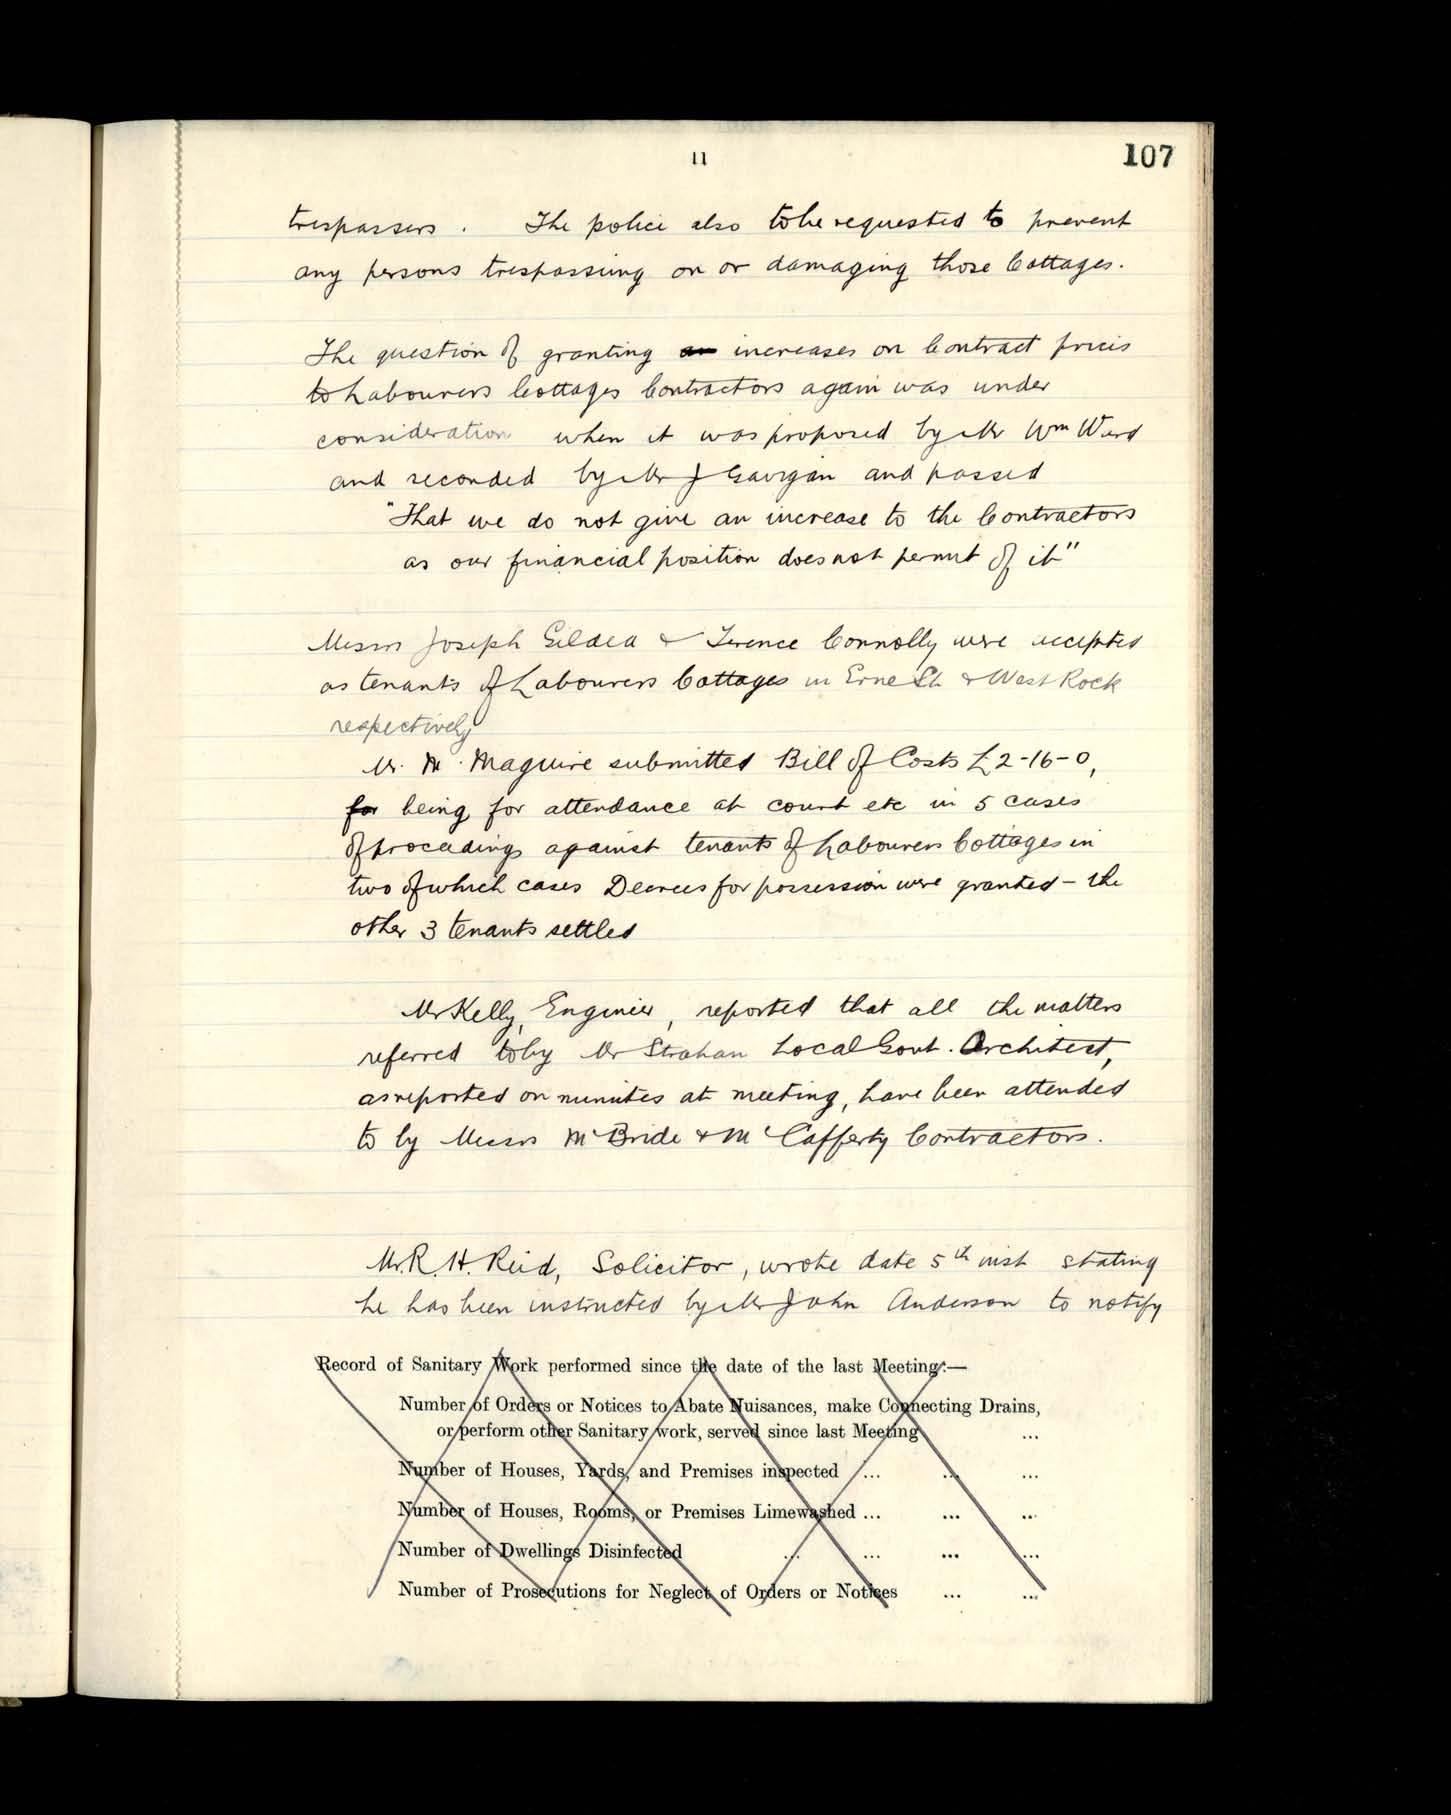 11
107
trespassers. The police also to be requested to prevent
any persons trespassing on or damaging those Cottages.
The question of granting an increases on Contract prices
to Labourers Cottages Contractors again was under
consideration when it was proposed by Mr Wm Ward
and seconded by Mr J Gavigan and passed
"That we do not give an increase to the Contractors
as our financial position does not permit of it"
Messrs Joseph Gildea & Terence Connolly were accepted
as tenants of Labourers Cottages in Erne St & West Rock
respectively
Mr. M. Maguire submitted Bill of Costs £2-16-0,
for being for attendance at court etc in 5 cases
of proceedings against tenants of Labourers Cottages in
two of which cases Decrees for possession were granted - the
other 3 tenants settled
Mr Kelly, Engineer, reported that all the matters
referred to by Mr Strahan Local Govt. Architect,
as reported on minutes at meeting, have been attended
to by Messrs McBride & McCafferty Contractors.
Mr. R. H. Reid, Solicitor, wrote date 5th inst stating
he has been instructed by Mr John Anderson to notify
Record of Sanitary Work performed since the date of the last Meeting:—
Number of Orders or Notices to Abate Nuisances, make Connecting Drains,
or perform other Sanitary work, served since last Meeting ...
Number of Houses, Yards, and Premises inspected ... ... ...
Number of Houses, Rooms, or Premises Limewashed ... ... ...
Number of Dwellings Disinfected ... ... ... ...
Number of Prosecutions for Neglect of Orders or Notices ... ...